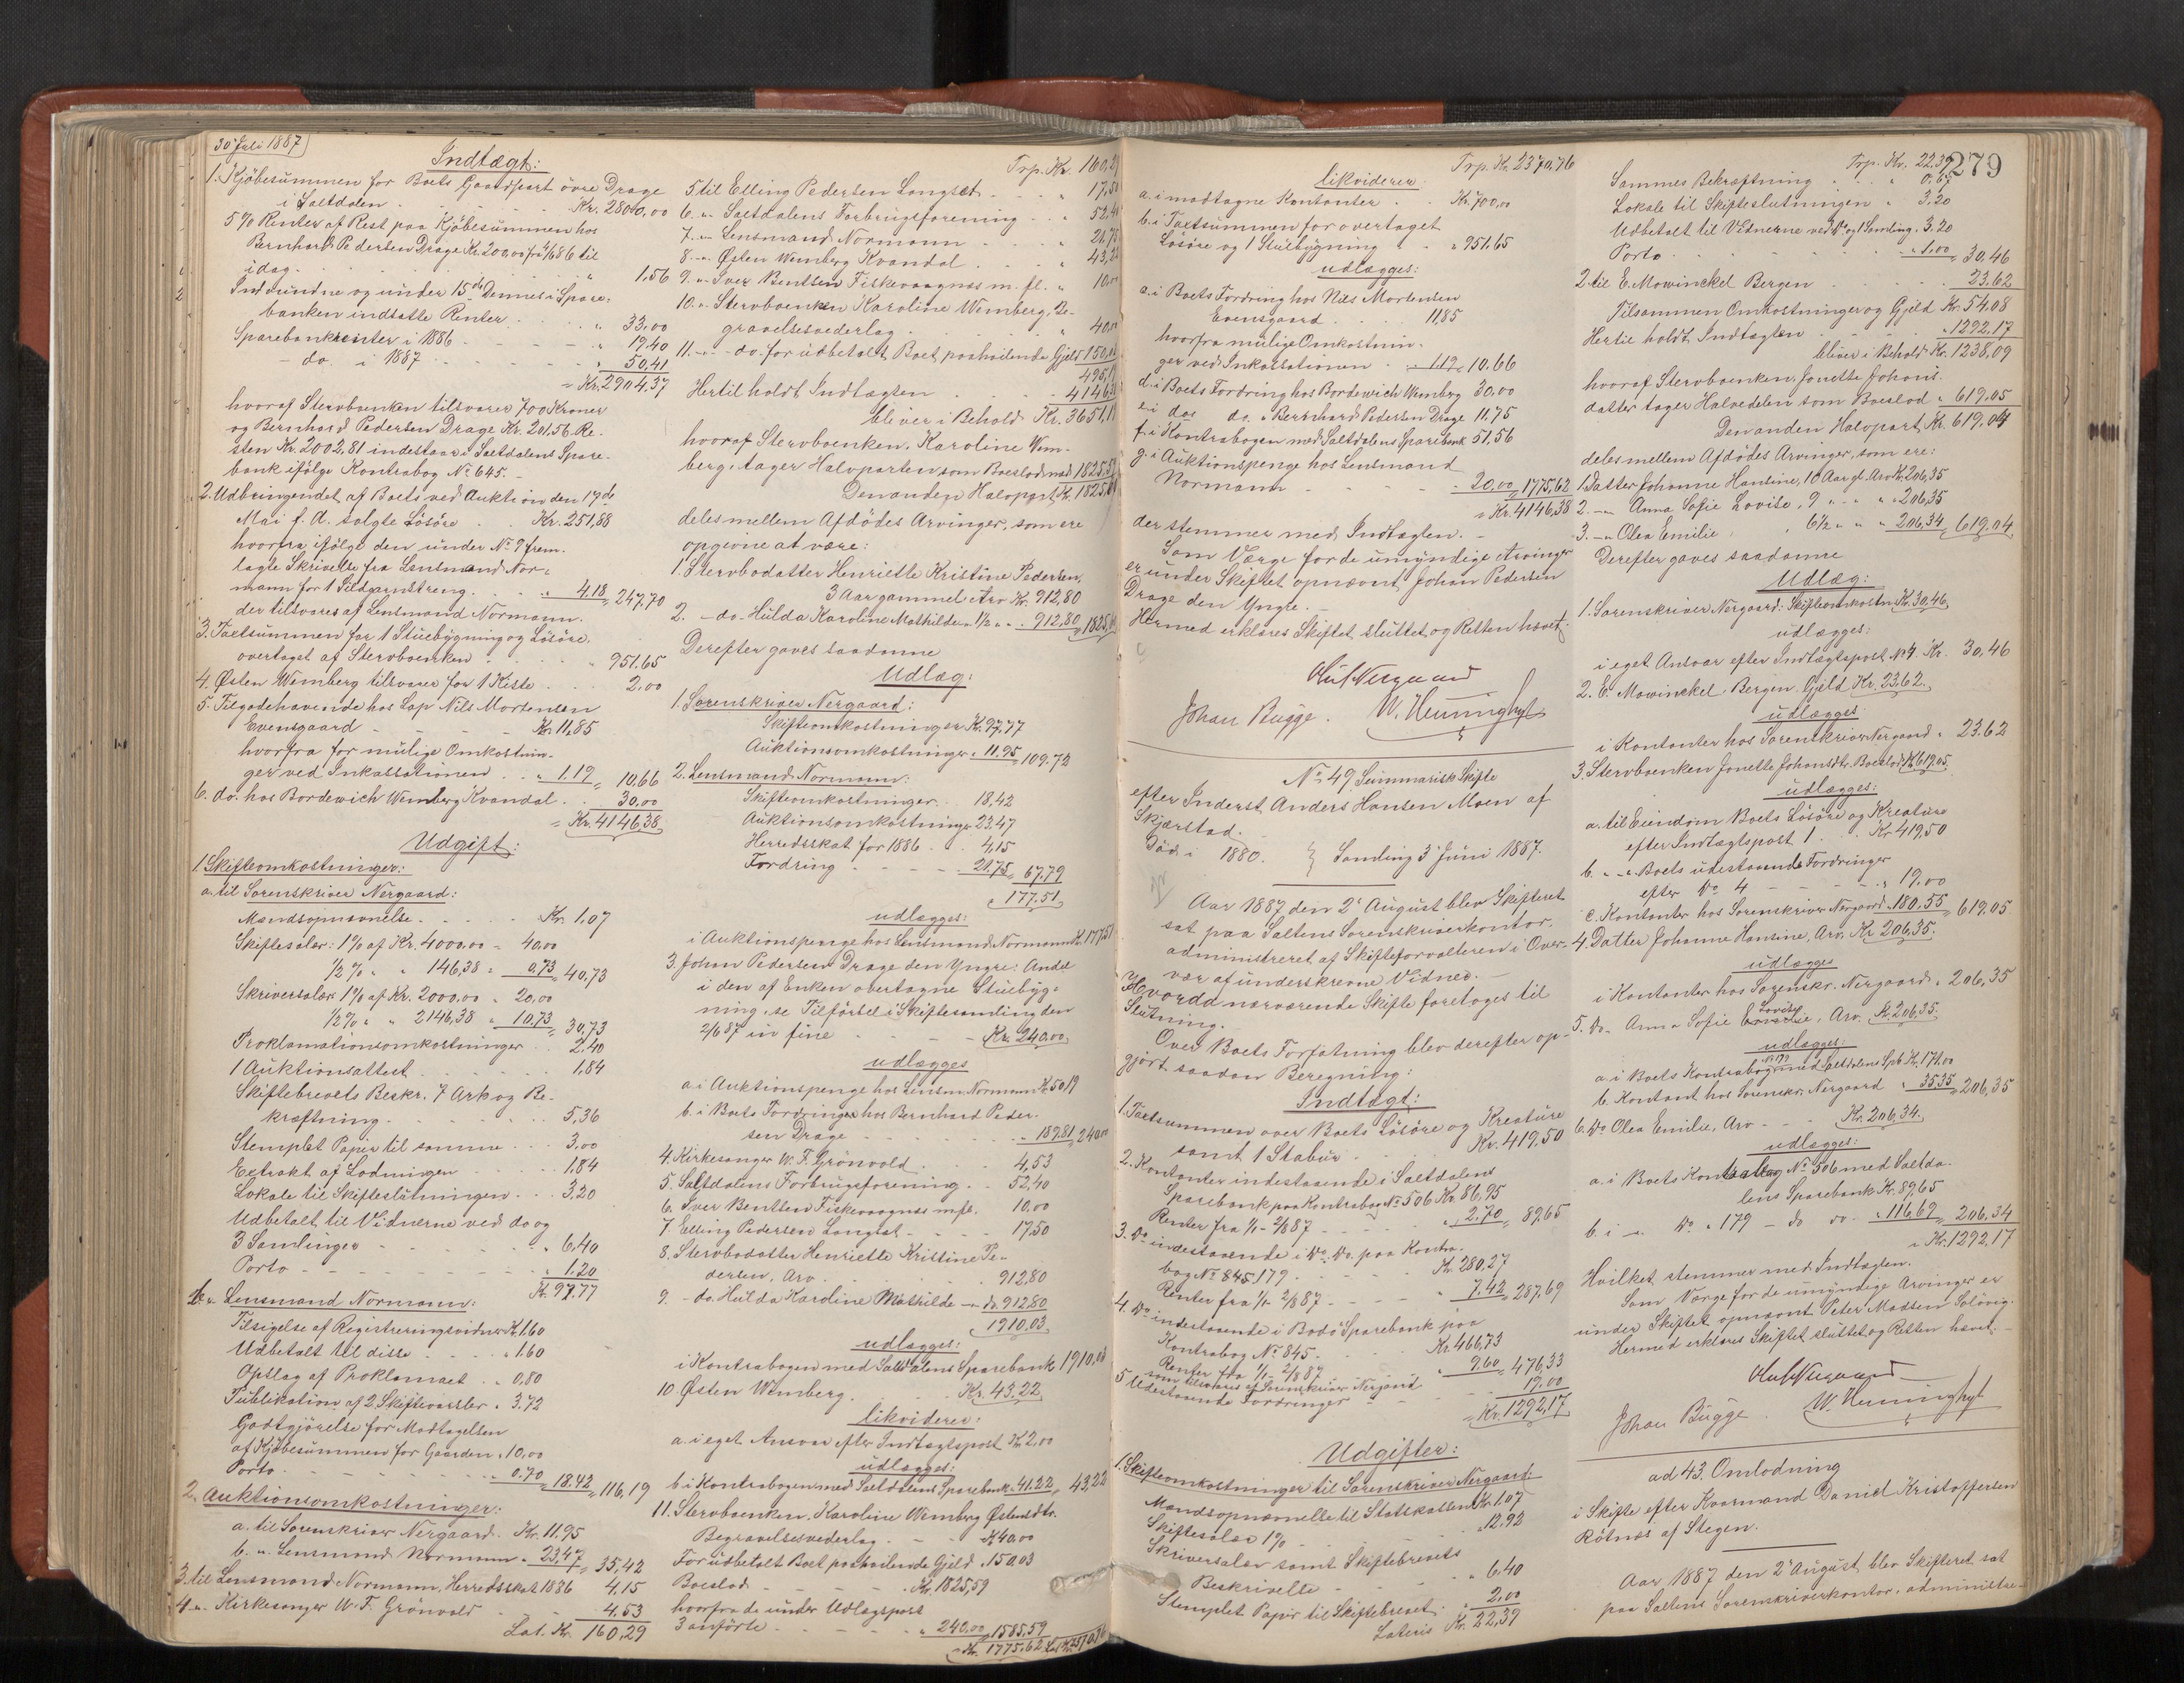 30 Juli 1887
Indtægt:
1. Kjöbesummen for Boets Gaardpart övre Drage
i Saltdalen . . . Kr. 2800,00
5 % Renter af Rest paa Kjöbesummen hos
Bernhard Pedersen Drage Kr. 200,00 fra 4/6 86 til
idag . . . " 1,56
Indvundne og under 15de Dennes i Spare-
banken indsatte Renter . . " 33,00
Sparebankrenter i 1886 . . " 19,40
do. i 1887 . . " 50,41
= Kr. 2904,37
hvoraf Stervboenken tilsvarer 700 Kroner
og Bernhard Pedersen Drage Kr. 201,56 Re-
sten Kr. 2002,81 indestaar i Saltdalens Spare-
bank ifölge Kontrabog No 645. -
2. Udbringendet af Boets ved Auktion den 19de
Mai f. A. solgte Lösöre . . Kr. 251,88
hvorfra ifölge den under No 9 frem-
lagte Skrivelse fra Lensmand Nor-
mann for 1 Sildgarnstreng . . " 4,18 = 247,70
der tilsvares af Lensmand Normann.
3. Taxtsummen for 1 Stuebygning og Lösöre,
overtaget af Stervboenken . . " 951,65
4. Østen Wemberg tilsvarer for 1 Kiste . . 2,00
5. Tilgodehavende hos Lap Nils Mortensen
Evensgaard . . Kr. 11,85
hvorfra for mulige Omkostnin-
ger ved Inkassationen . . " 1,19 = 10,66
6. do. hos Bordewich Wemberg Kvandal . . 30,00
= Kr. 4146,38
Udgift:
1. Skifteomkostninger:
a. til Sorenskriver Nergaard:
Mandsopnævnelse . . . Kr. 1,07
Skiftesalær: 1% af Kr. 4000,00 = 40,00
1/2 % " " 146,38 = 0,73 = 40,73
Skriversalær 1% af Kr. 2000,00 = 20,00
1/2 % " " 2146,38 = 10,73 = 30,73
Proklamationsomkostninger . . 2,40
1 Auktionsattest . . . 1,84
Skiftebrevets Beskr. 7 Ark og Be-
kræftning . . . 5,36
Stemplet Papir til samme . . 3,00
Extrakt af Lodningen . . 1,84
Lokale til Skifteslutningen . . 3,20
Udbetalt til Vidnerne ved do og
3 Samlinger . . " 6,40
Porto . . " 1,20
Kr. 97,77
b. " Lensmand Normann:
Tilsigelse af Registreringsvidner Kr. 1,60
Udbetalt til disse . . " 1,60
Opslag af Proklamaet . " 0,80
Publikation af 2 Skiftevarsler " 3,72
Godtgjörelse for Modtagelsen
af Kjöbesummen for Gaarden " 10,00
Porto . . " 0,70 = 18,42 = 116,19
2. Auktionsomkostninger:
a. til Sorenskriver Nergaard . Kr. 11,95
b. " Lensmand Normann " 23,47 = 35,42
3. til Lensmand Normann, Herredsskat 1886 4,15
4 " Kirkesanger W. F. Grönvold . . 4,53
Lat. Kr. 160,29
Trp. Kr. 160,29
5 til Elling Pedersen Langset . . " 17,50
6. " Saltdalens Forbrugsforening . . " 52,40
7. " Lensmand Normann . . " 21,75
8. " Østen Wemberg Kvandal . . " 43,22
9. " Iver Bentsen Fiskevaagnes m. fl. " 10,00
10. " Stervboenken Karoline Wemberg, Be-
gravelsesvederlag . . " 40,00
11. " - do. for udbetalt Boet paahvilende Gjeld 150,03
495,19
Hertil holdt Indtægten . . 4146,38
bliver i Behold Kr. 3651,19
hvoraf Stervboenken, Karoline Wem-
berg, tager Halvparten som Boeslod med 1825,59
Den anden Halvpart Kr. 1825,60
deles mellem Afdödes Arvinger, som ere
opgivne at være:
1. Stervbodatter Henriette Kristine Pedersen,
3 Aar gammel Arv Kr. 912,80
2. - do. Hulda Karoline Mathilde " 1 1/2 " " 912,80 = 1825,60
Derefter gaves saadanne
Udlæg:
1. Sorenskriver Nergaard:
Skifteomkostninger Kr. 97,77
Auktionsomkostninger " 11,95 = 109,72
2. Lensmand Normann:
Skifteomkostninger . 18,42
Auktionsomkostninger 23,47
Herredsskat for 1886 . . 4,15
Fordring . . 21,75 = 67,79
= 177,51
udlægges:
i Auktionspenge hos Lensmand Normann Kr. 177,51
3. Johan Pedersen Drage den Yngre: Andel
i den af Enken overtagne Stuebyg-
ning, se Tilförsel i Skiftesamling den
2/6 87 in fine . . Kr. 240,00
udlægges
a. i Auktionspenge hos Lensm. Normann Kr. 50,19
b. i Boets Fordringer hos Bernhard Peder-
sen Drage . . " 189,81 = 240,00
4. Kirkesanger W. F. Grönvold . . 4,53
5. Saltdalens Forbrugsforening . . 52,40
6. Iver Bentsen Fiskevaagnes m.fl. . 10,00
7. Elling Pedersen Langset . . 17,50
8. Stervbodatter Henriette Kristine Pe-
dersen, Arv . . 912,80
9. - do. Hulda Karoline Mathilde - do 912,80
1910,03
udlægges:
i Kontrabogen med Saltdalens Sparebank 1910,03
10 Østen Wemberg . . Kr. 43,22
likviderer:
a. i eget Ansvar efter Indtægtspost Kr. 2,00
udlægges:
b. i Kontrabogen med Saltdalens Sparebank " 41,22 = 43,22
11. Stervboenken, Karoline Wemberg Østensdtr.
Begravelsesvederlag . . Kr. 40,00
For udbetalt Boet paahvilende Gjeld " 150,03
Boeslod . . Kr. 1825,59
hvorfra de under Udlægspost
3 anförte . . " 240,00 = 1585,59
= Kr. 1775,62 Lat. Kr. 2370,76
Trp. Kr. 2370,76
likviderer
a. i modtagne Kontanter . . Kr. 700,00
b. i Taxtsummen for overtaget
Lösöre og 1 Stuebygning . " 951,65
udlægges:
c. i Boets Fordring hos Nils Mortensen
Evensgaard . . 11,85
hvorfra mulige Omkostnin-
ger ved Inkassationen . . 1,19 = 10,66
d. i Boets Fordring hos Bordewich Wemberg 30,00
e. i dos do. " Bernhard Pedersen Drage 11,75
f. i Kontrabogen med Saltdalens Sparebank 51,56
g. i Auktionspenge hos Lensmand
Normann . . " 20,00 = 1775,62
= Kr. 4146,38
der stemmer med Indtægten. -
Som Værge for de umyndige Arvinger
er under Skiftet opnævnt Johan Pedersen
Drage den Yngre. -
Hermed erklæres Skiftet sluttet og Retten hævet.
Chr. Nergaard
Johan Bugge. W. Henninghyt
No 49. Summarisk Skifte
efter Inderst Anders Hansen Moen af
Skjærstad.
Död i 1880. } Samling 3' Juni 1887.
Aar 1887 den 2' August blev Skifteret
sat paa Saltens Sorenskriverkontor,
administreret af Skifteforvalteren i Over-
vær af underskrevne Vidner. -
Hvorda nærværende Skifte foretoges til
Slutning.
Over Boets Forfatning blev derefter op-
gjört saadan Beregning:
Indtægt:
1. Taxtsummen over Boets Lösöre og Kreature
samt 1 Stabur . . Kr. 419,50
2. Kontanter indestaaende i Saltdalens
Sparebank paa Kontrabog No 506 Kr. 86,95
Renter fra 1/1 - 2/8 87 . . " 2,70 = 89,65
3. Do indestaaende i do. do. paa Kontra-
bog No 179 . . Kr. 280,27
Renter fra 1/1 - 2/8 87 . . 7,42 = 287,69
4. Do indestaaende i Bodö Sparebank paa
Kontrabog No 845 . . Kr. 466,73
Renter fra 1/1 - 2/8 87 . . " 9,60 = 476,33
som tilsvares af Sorenskriver Nergaard
5 Udestaaende Fordringer . . 19,00
= Kr. 1292,17
Udgifter:
1. Skifteomkostninger til Sorenskriver Nergaard:
Mandsopnævnelse til Statskassen Kr. 1,07
Skiftesalær 1% . . " 12,92
Skriversalær samt Skiftebrevets
Beskrivelse . . " 6,40
Stemplet Papir til Skiftebrevet . " 2,00
Lateris Kr. 22,39
279
Trp. Kr. 22,39
Sammes Bekræftning . . " 0,67
Lokale til Skifteslutningen " 3,20
Udbetalt til Vidnerne ved do og 1 Samling " 3,20
Porto . . " 1,00 = 30,46
2 til E. Mowinckel Bergen . . 23,62
Tilsammen Omkostninger og Gjeld Kr. 54,08
Hertil holdt Indtægten . . " 1292,17
bliver i Behold Kr. 1238,09
hvoraf Stervboenken, Jonette Johans-
datter tager Halvdelen som Boeslod " 619,05
Den anden Halvpart Kr. 619,04
deles mellem Afdödes Arvinger, som ere:
1. Datter Johanne Hansine, 10 Aar gl. Arv Kr. 206,35
2. - " Anna Sofie Lovise, 9 " " " " 206,35
3. - " Olea Emilie, 6 1/2 " " " 206,34 = 619,04
Derefter gaves saadanne
Udlæg:
1. Sorenskriver Nergaard: Skifteomkostn. Kr. 30,46
udlægges:
i eget Ansvar efter Indtægtspost No 4 Kr. 30,46
2. E. Mowinckel, Bergen, Gjeld Kr. 23,62
udlægges
i Kontanter hos Sorenskriver Nergaard " 23,62
3. Stervboenken Jonette Johansdtr. Boeslod Kr. 619,05
udlægges:
a. til Eiendom Boets Lösöre og Kreature
efter Indtægtspost 1 . . Kr. 419,50
b. " " Boets udestaaende Fordringer
efter do 4 . . " 19,00
c. Kontanter hos Sorenskriver Nergaard " 180,55 = 619,05
4. Datter Johanne Hansine, Arv, Kr. 206,35.
udlægges
i Kontanter hos Sorenskr. Nergaard " 206,35
5. Do Anna Sofie Lovise, Arv. Kr. 206,35.
udlægges:
a. i Boets Kontrabog No 179 med Saltdalens Spb. Kr. 171,00
b. Kontant hos Sorenskr. Nergaard " 35,35 = 206,35
6. Do Olea Emilie, Arv . . Kr. 206,34.
udlægges:
a. i Boets Kontrabog No 506 med Saltda-
lens Sparebank Kr. 89,65
b. i - " do " 179 - do do. " 116,69 = 206,34
= Kr. 1292,17
Hvilket stemmer med Indtægten.
Som Værge for de umyndige Arvinger er
under Skiftet opnævnt Peter Madsen Solövig.
Hermed erklæres Skiftet sluttet og Retten hævet. -
Chr. Nergaard
Johan Bugge. W. Henninghyt
ad 43. Omlodning
i Skifte efter Kaarmand Daniel Kristoffersen
Rötnes af Stegen.
Aar 1887 den 2' August blev Skifteret sat
paa Saltens Sorenskriverkontor, administre-